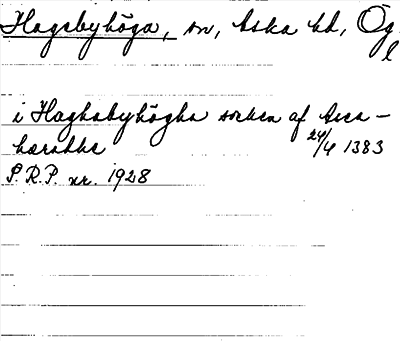 Hagebyhöga, sn, Aska hd, Ög.
l
i Haghabyhögha soken af Asca-
hæradhe 24/4 1383
S.R.P. nr. 1928